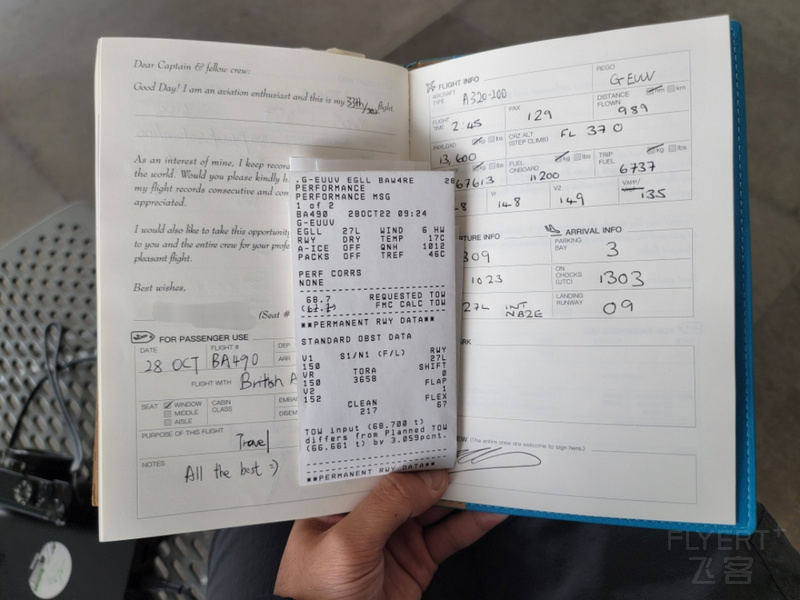 Dear Captain & fellow crew:
Good Day! I am an aviation enthusiast and this is my 33th/ flight.
As an interest of mine, I keep recor
the world. Would you please kindly h
my flight records consecutive and con
appreciated.
I would also like to take this opportunity
to you and the entire crew for your profe
pleasant flight.
Best wishes,
(Seat #
FOR PASSENGER USE
DATE
FLIGHT #
DEP
28 OCT
BA490
ARR
FLIGHT WITH
British A
SEAT
WINDOW
MIDDLE
AISLE
CABIN CLASS
EMBA
DISEM
PURPOSE OF THIS FLIGHT
Travel
NOTES
All the best =)
.G-EUUV EGLL BAW4RE 28
PERFORMANCE
PERFORMANCE MSG
1 of 2
BA490 28OCT22 09:24
G-EUUV
EGLL 27L WIND 6 HW
RWY DRY TEMP 17C
A-ICE OFF QNH 1012
PACKS OFF TREF 46C
PERF CORRS
NONE
68.7 REQUESTED TOW
FMC CALC TOW
**PERMANENT RWY DATA**
STANDARD OBST DATA
V1 S1/N1 (F/L) RWY
150 27L
VR TORA SHIFT
150 3658 0
V2 FLAP
152 1
CLEAN FLEX
217 67
TOW input (68.700 t)
differs from Planned TOW
(66.661 t) by 3.059pcnt.
**PERMANENT RWY DATA**
FLIGHT INFO
AIRCRAFT TYPE
A320-200
REGO
G EUUV
FLIGHT TIME
2:45
PAX
129
DISTANCE FLOWN
nm km
989
PAYLOAD
kg lbs
13,600
CRZ ALT (STEP CLIMB)
FL 370
67613
FUEL ONBOARD
kg lbs
11200
TRIP FUEL
kg lbs
6737
V1
148
V2
149
VAPP/
135
TURE INFO
ARRIVAL INFO
309
PARKING BAY
3
1023
ON CHOCKS (UTC)
1303
27L
LANDING RUNWAY
09
ARK
EW (The entire crew are welcome to sign here.)
FLYERT+
飞客